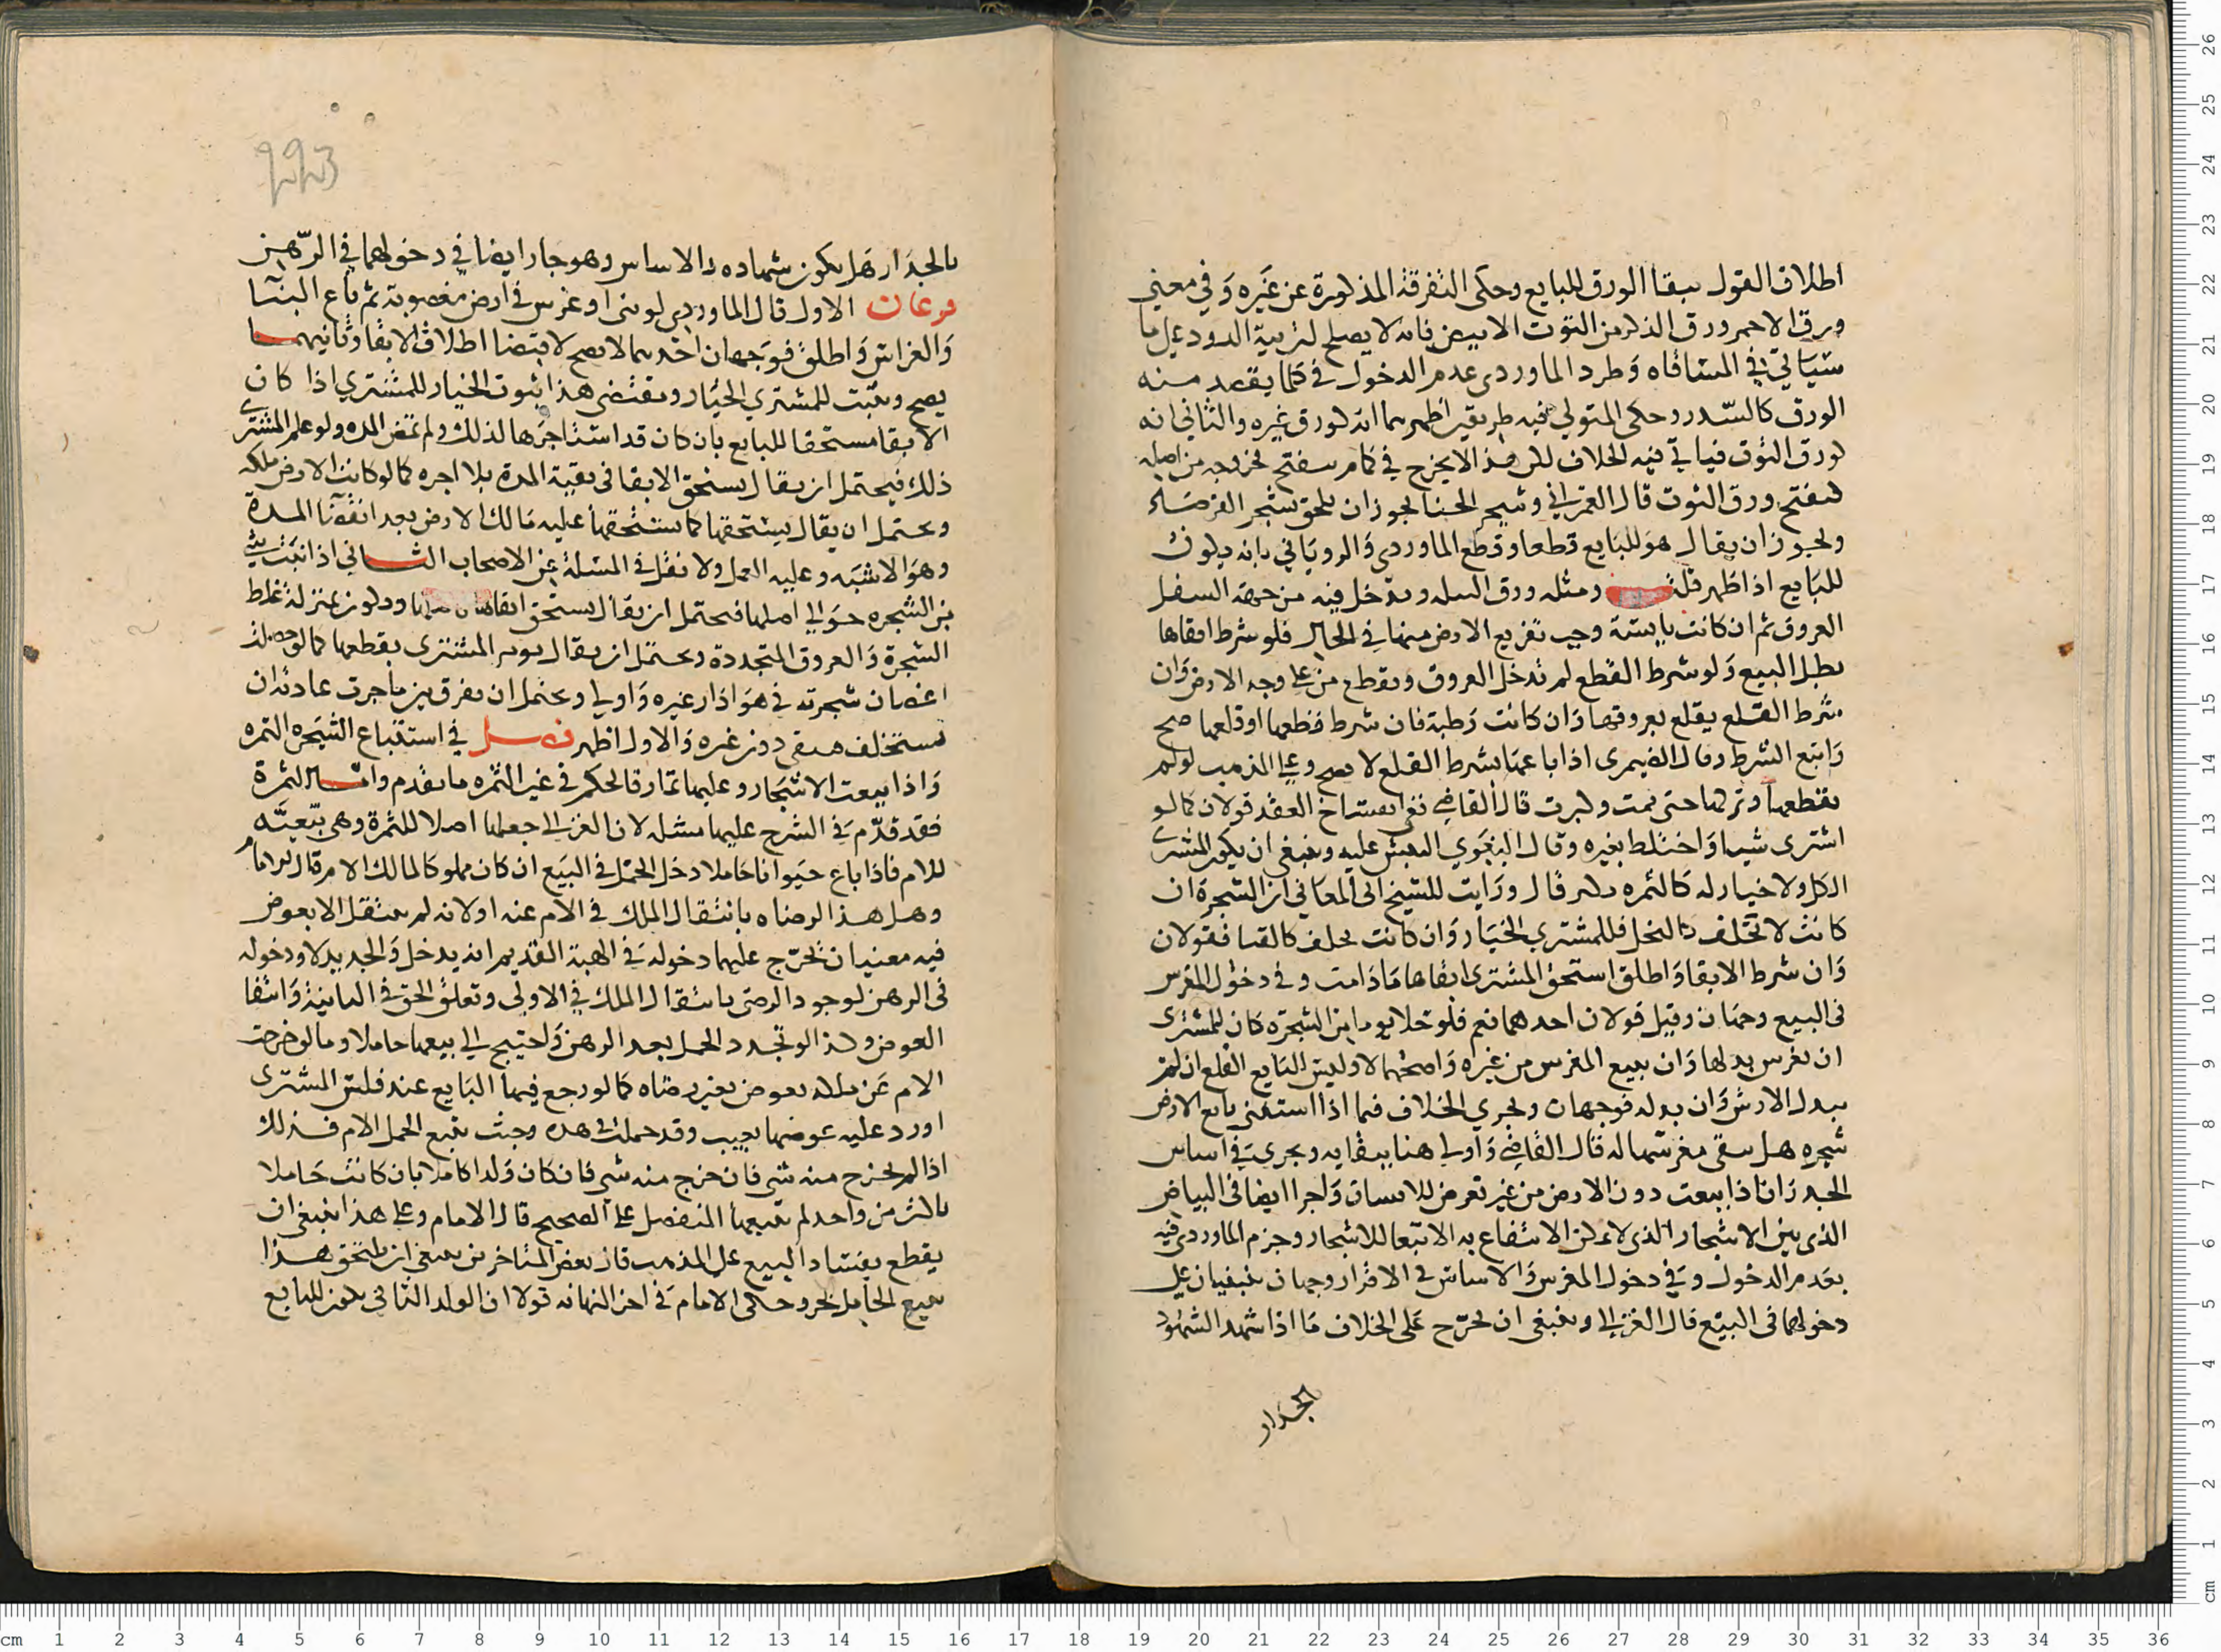 اطلاق القول ببقا الورق للبايع وحكى التفرقة المذكورة عن غيره وفي معنى
ورق الاحمر ورق الذكر من التوت الابيض فانه لا يصلح لتربية الدود على ما
سياتي في المساقاه وطرد الماوردى عدم الدخول في كلما يقصد منه
الورق كالسدر وحكى المتولي فيه طريقين اظهرهما انه كورق غيره والثاني انه
كورق التوت فياتي فيه الخلاف لكن هذا لا يخرج في كام ينفتح بخروجه من اصله
فينفتح ورق التوت قال العمراني وشجر الحنا يجوز ان يلحق بشجر الفرصاد
ويجوز ان يقال هو للبايع قطعا وقطع الماوردى والروياني بانه يكون
للبايع اذا ظهر قلت ومثله ورق النيله ويدخل فيه من جهة السفل
العروق ثم ان كانت يابسة وجب تفريع الارض منها في الحال فلو شرط ابقاها
بطل البيع ولو شرط القطع لم تدخل العروق ويقطع من على وجه الارض وان
شرط القلع يقلع بعروقها وان كانت رطبة فان شرط قطعها او قلعها صح
واتبع الشرط وقال الصيمرى اذا باعها بشرط القلع لا يصح وعلى المذهب لو لم
يقطعها وتركها حتى نمت وكبرت قال القاضي ففي انفساخ العقد قولان كما لو
اشترى شيا واختلط بغيره وقال البغوي النفيس عليه وينبغي ان يكون للمشترى
الكل ولا خيار له كالثمره تكبر قال ورايت للشيخ ابى المعالي ان الشجرة ان
كانت لا تخلف كالنخل فللمشتري الخيار وان كانت تخلف كالقنا فقولان
وان شرط الابقا واطلق استحق المشترى ابقاها ما دامت وفي دخول المغرس
فى البيع وجهان وقيل قولان احدهما نعم فلو خلا يوما من الشجره كان للمشترى
ان يغرس بدلها وان يبيع المغرس من غيره واصحهما لا وليس للبايع القلع ان لم
يبدل الارش وان بدله فوجهان ويجري الخلاف فيما اذا استثنى بايع الارض
شجره هل يبقى مغرسها له قال القاضي واولى هنا ببقايه ويجرى في اساس
الجدران اذا بيعت دون الارض من غير تعرض للاساس واجرا ايضا فى البياض
الذى بين الاشجار الذى لا يمكن الانتفاع به الا تبعا للاشجار وجزم الماوردى فيه
بعدم الدخول وفي دخول المغرس والاساس في الاقرار وجهان ينبنيان على
دخولهما فى البيع قال الغزالي وينبغى ان يخرج على الخلاف ما اذا شهد الشهود
الجدار
بالجدار هل يكون شهاده بالاساس وهو جار ايضا في دخولهما في الرهن
فرعان الاول قال الماوردى لو بنى او غرس في ارض مغصوبة ثم باع البنا
والغراس واطلق فوجهان احدهما لا يصح لاقتضا اطلاق الابقا وثانيهما
يصح ويثبت للمشتري الخيار ومقتضى هذا ثبوت الخيار للمشتري اذا كان
الابقا مستحقا للبايع بان كان قد استاجرها لذلك ولم تمض المده ولو علم المشترى
ذلك فيحتمل ان يقال يستحق الابقا فى بقية المدة بلا اجره كما لو كانت الارض ملكه
ويحتمل ان يقال يستحقها كما يستحقها عليه مالك الارض بعد انقضا المدة
وهو الاشبه وعليه العمل ولا نقل في المسئلة عن الاصحاب الثاني اذا نبتت
من الشجره حوالي اصلها فيحتمل ان يقال يستحق ابقاها ويكون بمنزلة غلظ
الشجرة والعروق المتجددة ويحتمل ان يقال يومر المشترى بقطعها كما لو حصلت
اغصان شجرته في هوا دار غيره واولي ويحتمل ان يفرق بين ما جرت عادته ان
يستخلف فيبقى دون غيره والاول اظهر فصل في استتباع الشجره الثمره
واذا بيعت الاشجار وعليها ثمار فالحكم في غير الثمره ما تقدم واما الثمرة
فقد قدم في الشرح عليها مسئله لان الغزالي جعلها اصلا للثمرة وهى تبعيته
للام فاذا باع حيوانا حاملا دخل الحمل في البيع ان كان مملوكا لمالك الام قال الامام
وهل هذا لرضاه بانتقال الملك في الام عنه او لانه لم ينتقل الا بعوض
فيه معنيان يخرج عليها دخوله في الهبة القديم انه يدخل والجديد لا ودخوله
فى الرهن لوجود الرضى بانتقال الملك في الاولى وتعلق الحق في الثانية وانتفا
العوض وكذا لو تجدد الحمل بعد الرهن واحتيج الي بيعها حاملا وما لو خرجت
الام عن ملكه بعوض بغير رضاه كما لو رجع فيها البايع عند فلس المشترى
او رد عليه عوضها بعيب وقد حملت في هذه وحيث يتبع الحمل الام فذلك
اذا لم يخرج منه شي فان خرج منه شي فان كان ولدا كاملا بان كانت حاملا
باكثر من واحد لم يتبعها المنفصل على الصحيح قال الامام وعلى هذا ينبغي ان
يقطع بفساد البيع على المذهب قال بعض المتاخرين ينبغى ان يلتحق هذا
ببيع الحامل بحر وحكى الامام في اخر النهايه قولا ان الولد الثانى يكون للبايع